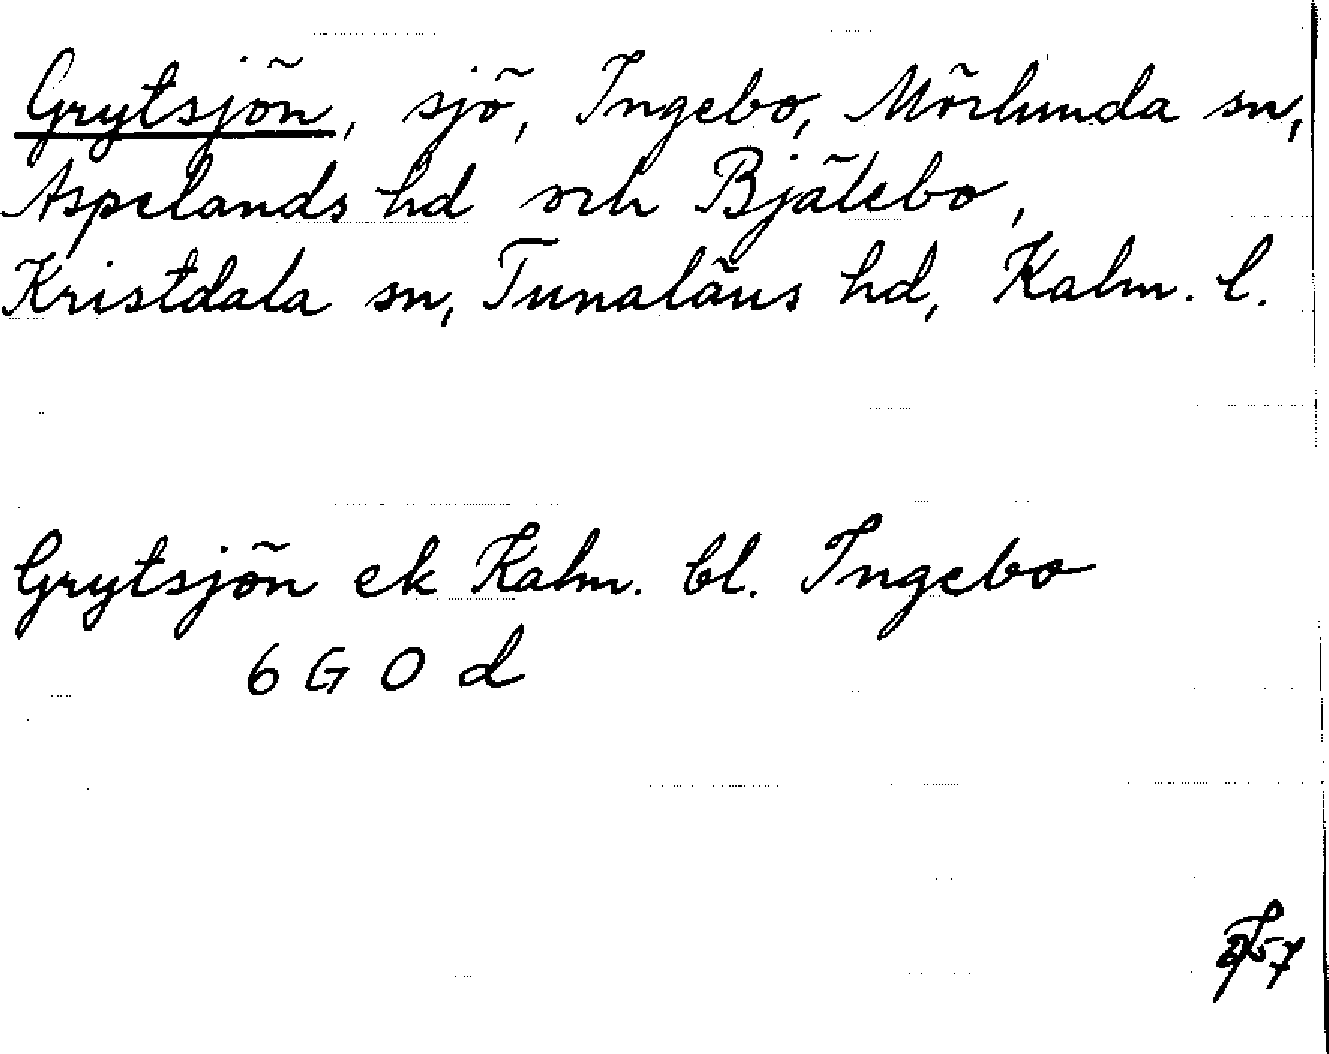 Grytsjön, sjö, Ingebo, Mörlunda sn,
Aspelands hd och Bjälebo,
Kristdala sn, Tunaläns hd, Kalm. l.
Grytsjön ek Kalm. bl. Ingebo
6 G 0 d